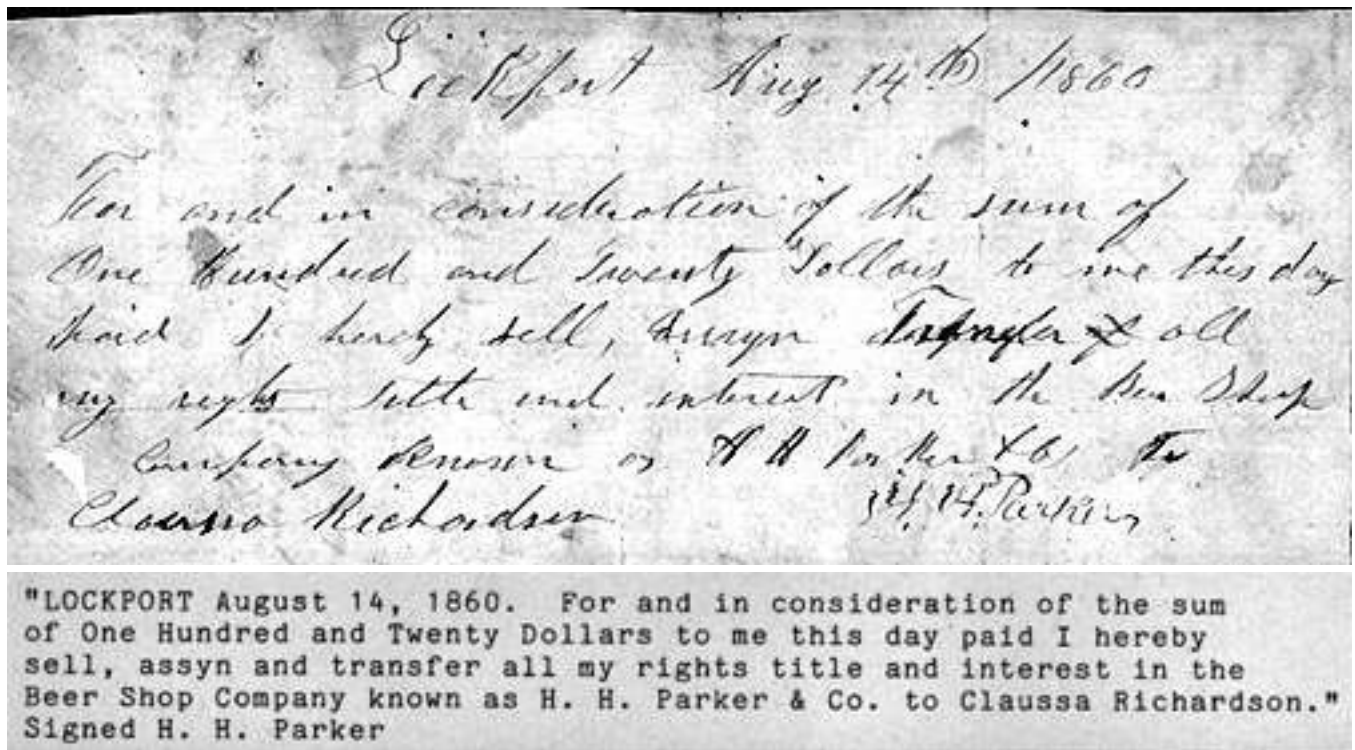 Lockport Aug 14th /1860
For and in consideration of the sum of
One Hundred and Twenty Dollars to me this day
paid I hereby sell, Assyn Transfer & all
my right title and interest in the Beer Shop
Company known as H H Parker & Co To
Claussa Richardson H. H. Parker
"LOCKPORT August 14, 1860. For and in consideration of the sum
of One Hundred and Twenty Dollars to me this day paid I hereby
sell, assyn and transfer all my rights title and interest in the
Beer Shop Company known as H. H. Parker & Co. to Claussa Richardson."
Signed H. H. Parker